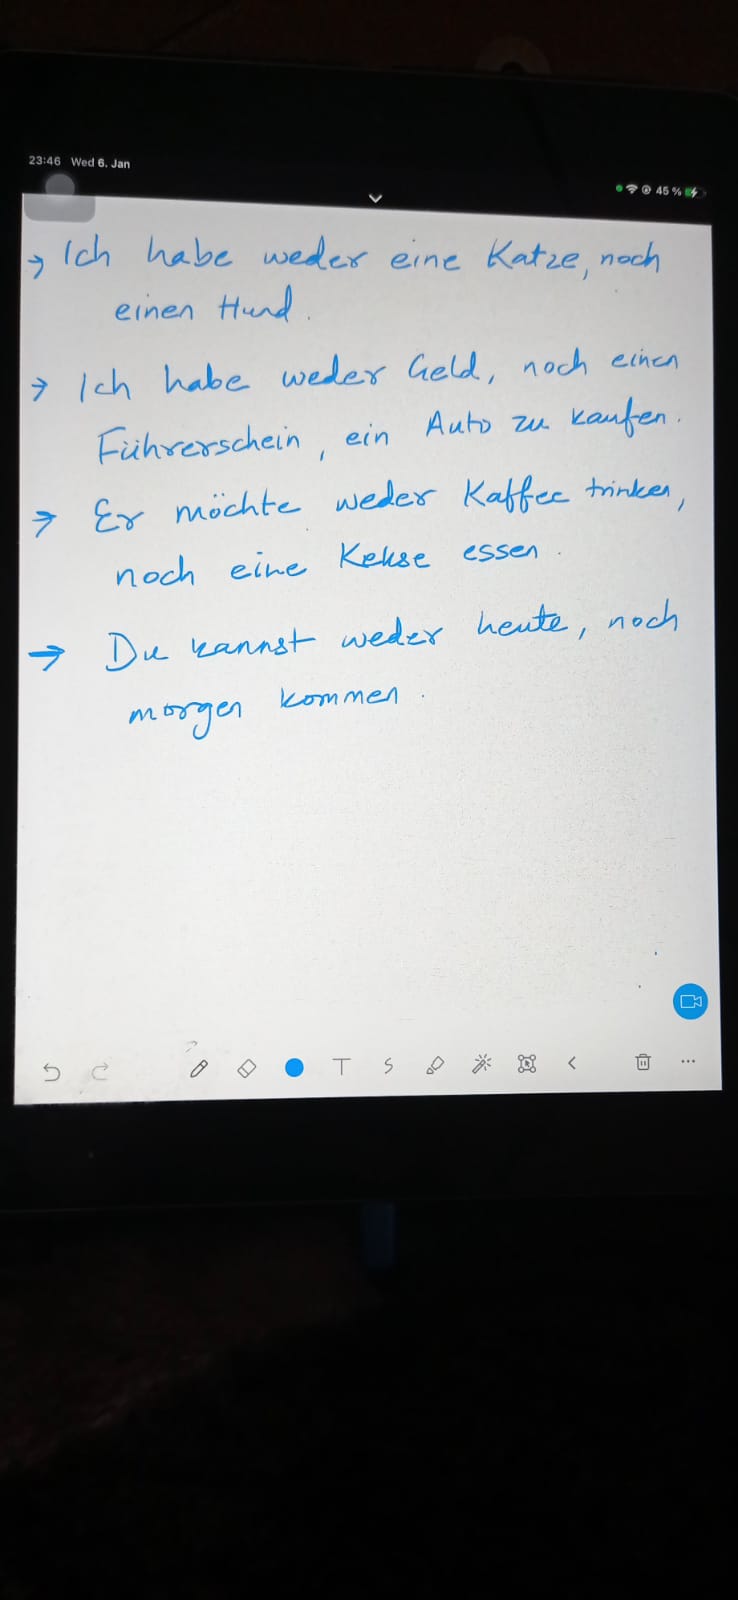 23:46 Wed 6. Jan
45 %
→ Ich habe weder eine Katze, noch
einen Hund.
→ Ich habe weder Geld, noch einen
Führerschein, ein Auto zu kaufen.
→ Er möchte weder Kaffee trinken,
noch eine Kekse essen.
→ Du kannst weder heute, noch
morgen kommen.
T